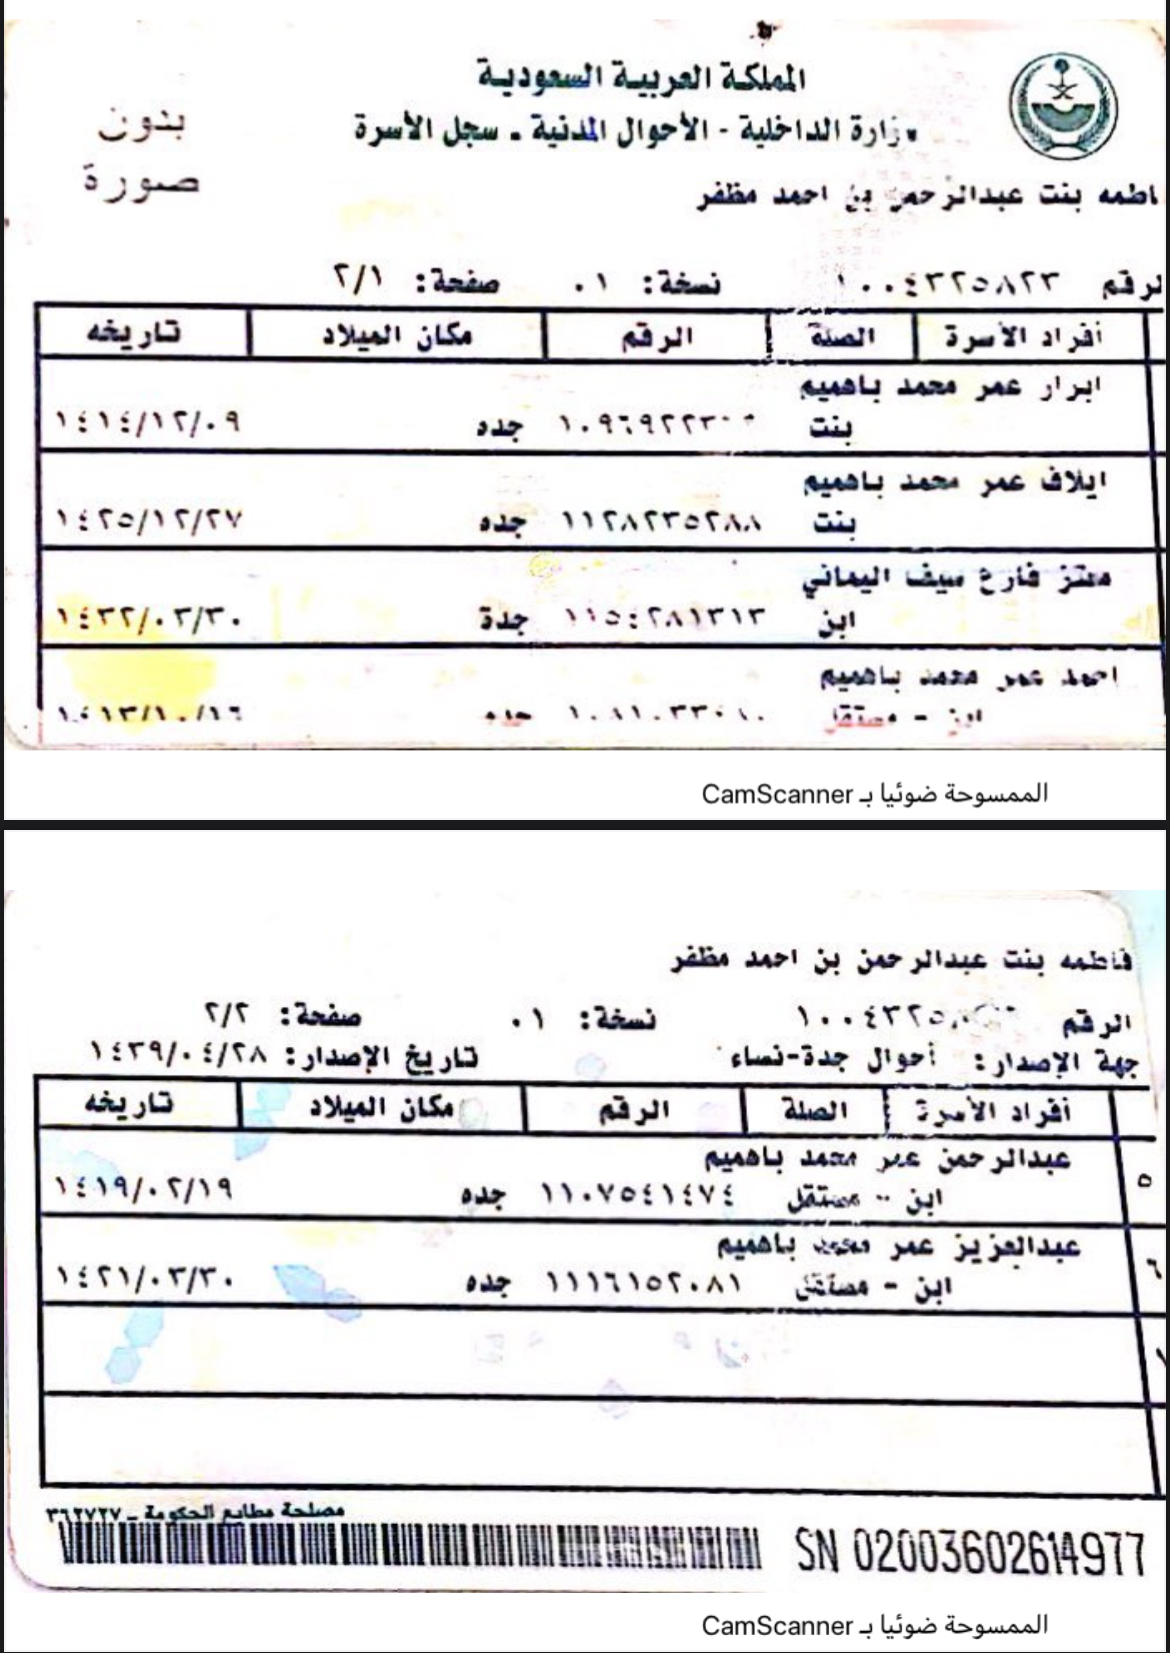 المملكة العربية السعودية
وزارة الداخلية - الأحوال المدنية - سجل الأسرة
بدون
صورة
فاطمه بنت عبدالرحمن بن احمد مظفر
الرقم ١٠٠٤٣٢٥٨٢٣ نسخة: ٠١ صفحة: ٢/١
أفراد الأسرة الصلة الرقم مكان الميلاد تاريخه
ابرار عمر محمد باهميم
بنت جده ١٤١٤/١٢/٠٩
ايلاف عمر محمد باهميم
بنت ١١٢٨٢٣٥٢٨٨ جده ١٤٢٥/١٢/٢٧
معتز فارع سيف اليماني
ابن ١١٥٤٢٨١٣١٣ جدة ١٤٣٢/٠٣/٣٠
احمد عمر محمد باهميم
ابن - مستقل جده ١٤١٣/١٠/١٦
الممسوحة ضوئيا بـ CamScanner
فاطمه بنت عبدالرحمن بن احمد مظفر
الرقم نسخة: ٠١ صفحة: ٢/٢
جهة الإصدار: أحوال جدة-نساء تاريخ الإصدار: ١٤٣٩/٠٤/٢٨
أفراد الأسرة الصلة الرقم مكان الميلاد تاريخه
عبدالرحمن عمر محمد باهميم
٥ ابن - مستقل ١١٠٧٥٤١٤٧٤ جده ١٤١٩/٠٢/١٩
عبدالعزيز عمر محمد باهميم
٦ ابن - مستقل ١١١٦١٥٢٠٨١ جده ١٤٢١/٠٣/٣٠
مصلحة مطابع الحكومة -
SN 02003602614977
الممسوحة ضوئيا بـ CamScanner